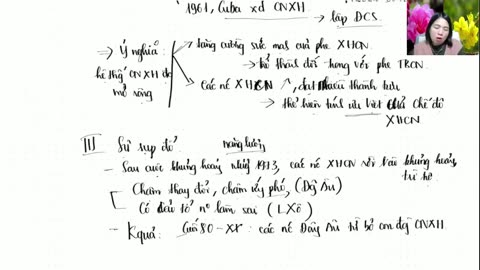 1961, Cuba xd CNXH
→ lập ĐCS.
→ Ý nghĩa:
hệ thg̃ CNXH đc
mở rộng
tăng cường sức mạ của phe XHCN.
→ trở thành đối trọng với phe TBCN
các nc XHCN ↗, đạt nhiều thành tựu
→ thể hiện tính ưu việt của chế độ
XHCN
III Sự sụp đổ năng lượng
- Sau cuộc khủng hoảng 1973, các nc XHCN rơi vào khủng hoảng,
trì trệ
Chậm thay đổi, chậm ứng phó, (Đg Âu)
Có điều tố nc làm sai (LXô)
- Kquả: Cuối 80-XX: các nc Đông Âu từ bỏ con đg CNXH